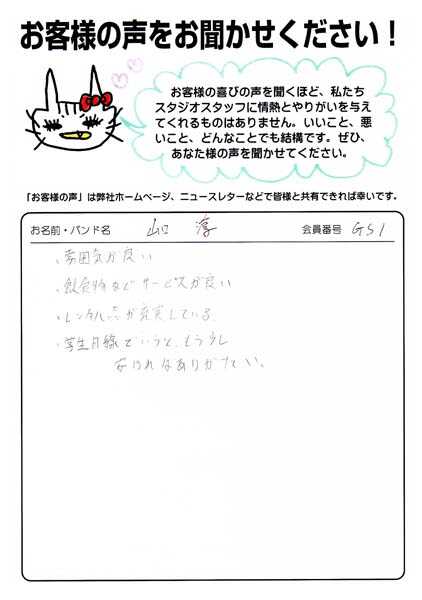 お客様の声をお聞かせください！
お客様の喜びの声を聞くほど、私たち
スタジオスタッフに情熱とやりがいを与え
てくれるものはありません。いいこと、悪
いこと、どんなことでも結構です。ぜひ、
あなた様の声を聞かせてください。
「お客様の声」は弊社ホームページ、ニュースレターなどで皆様と共有できれば幸いです。
お名前・バンド名 山口 淳 会員番号 G51
・雰囲気が良い
・飲食物などサービスが良い
・レンタル品が充実している
・学生目線でいうと、もう少し
安ければありがたい。